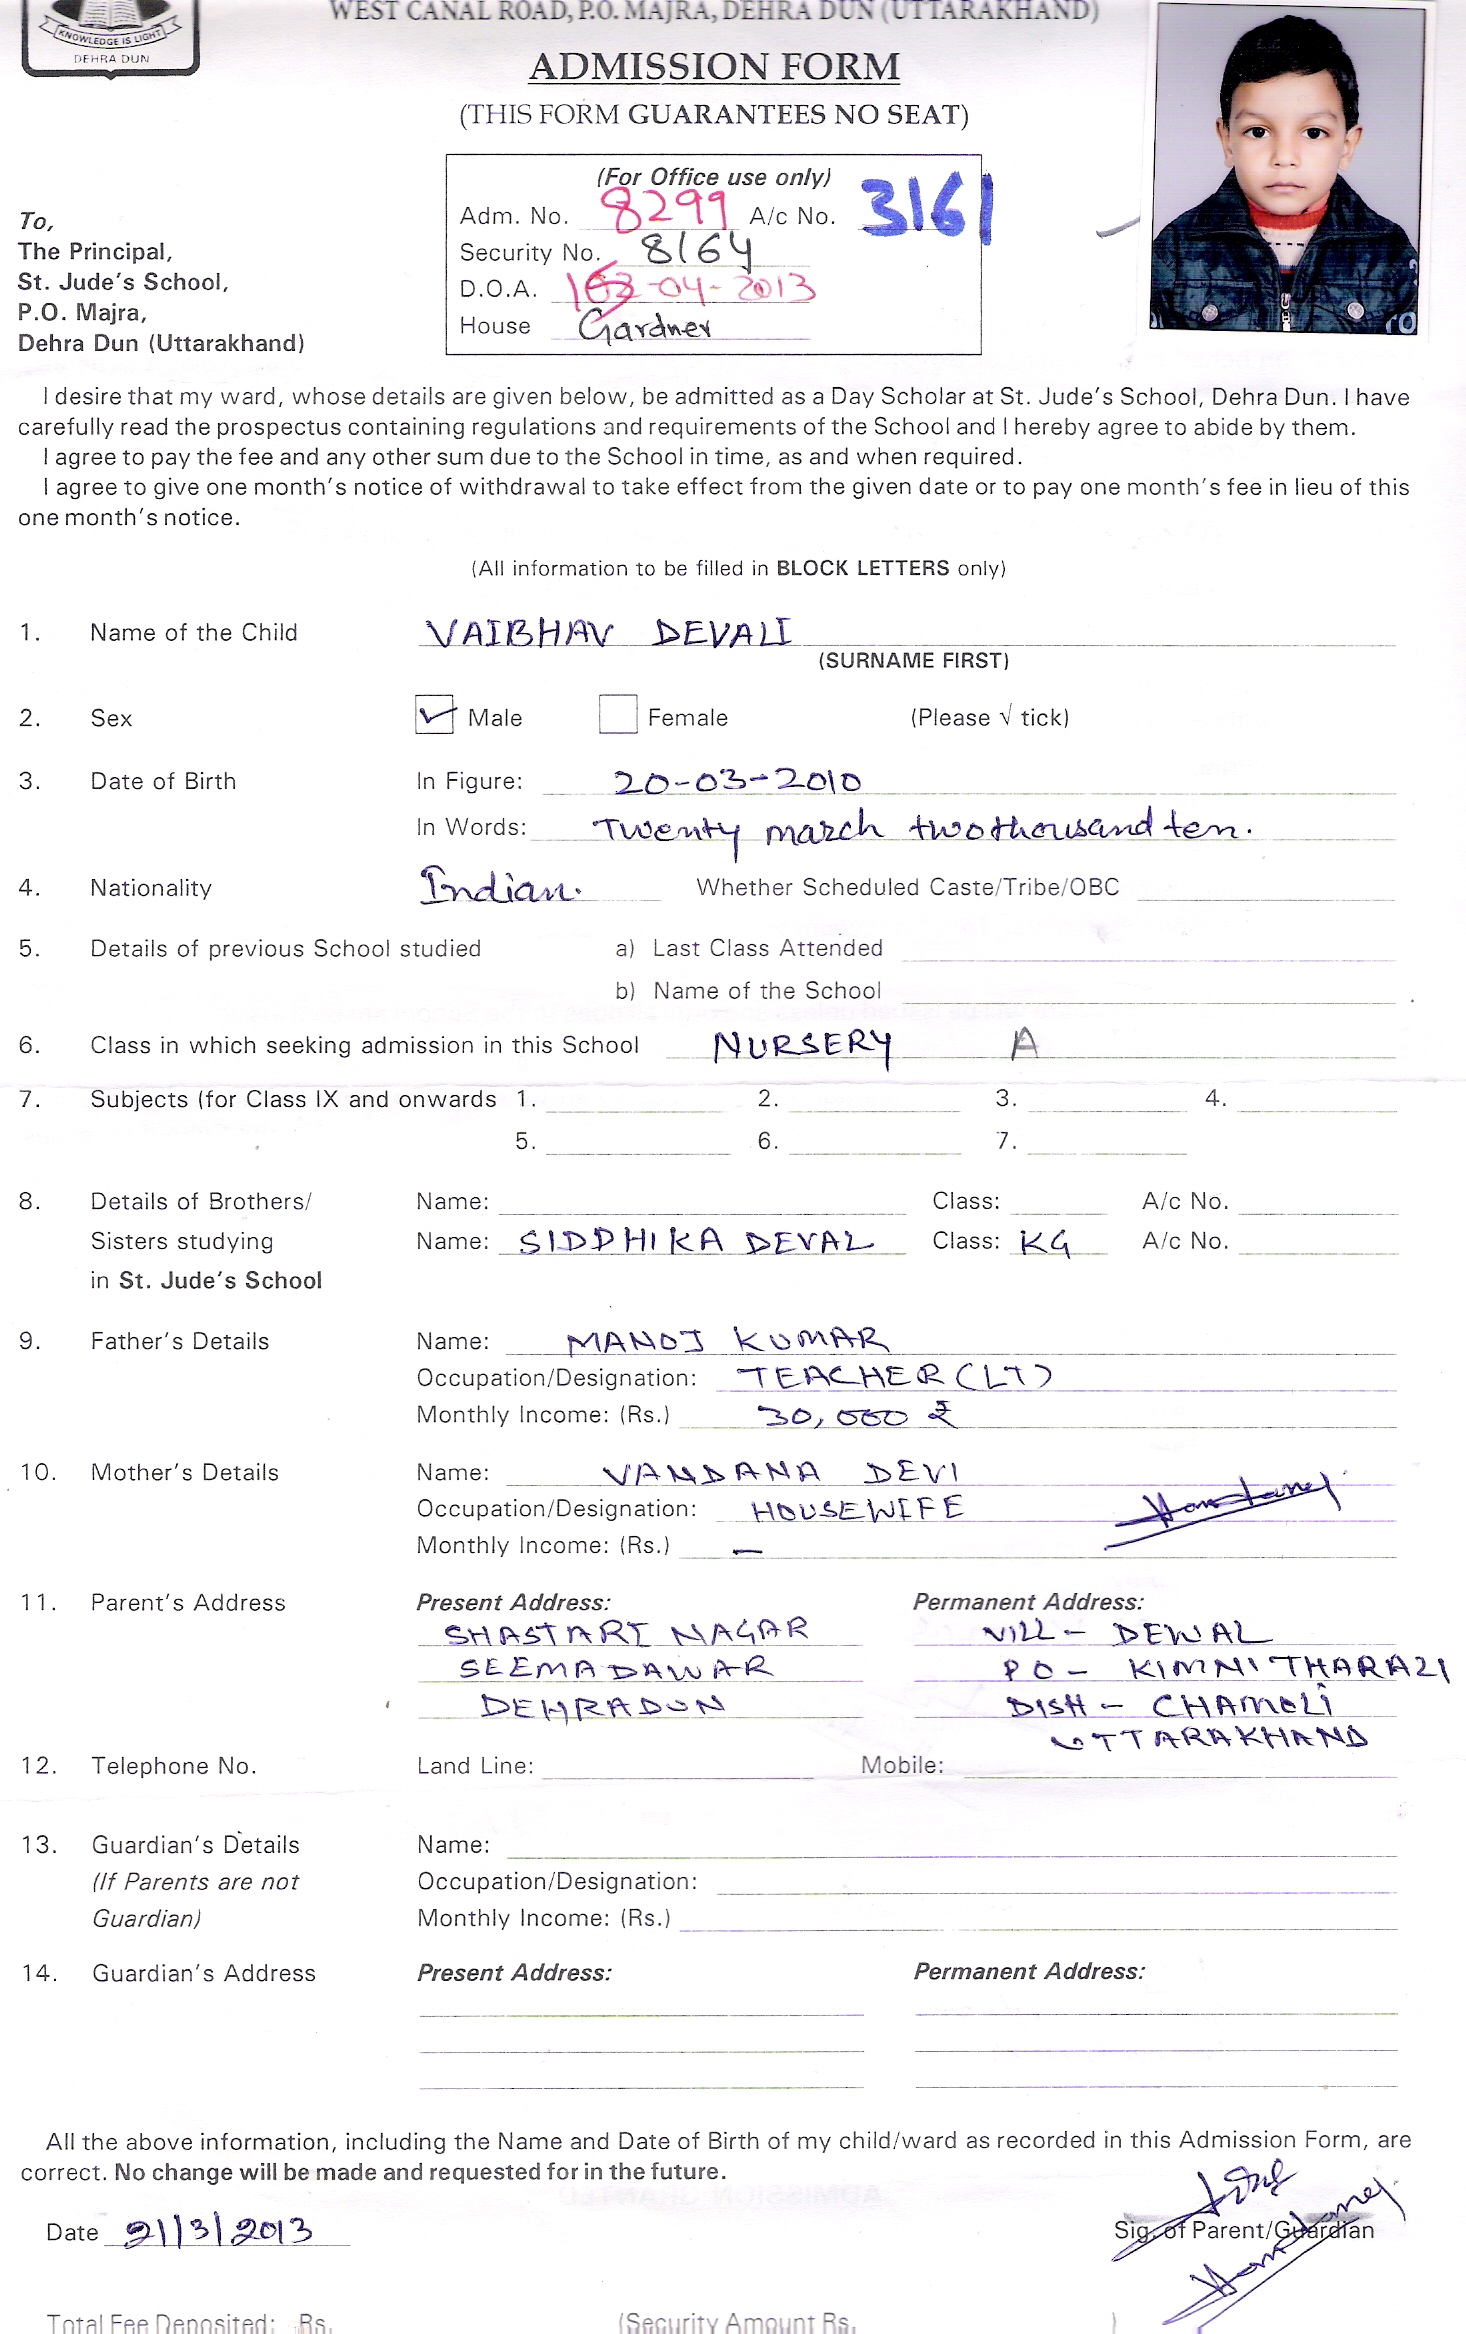 WEST CANAL ROAD, P.O. MAJRA, DEHRA DUN (UTTARAKHAND)
KNOWLEDGE IS LIGHT
DEHRA DUN
ADMISSION FORM
(THIS FORM GUARANTEES NO SEAT)
(For Office use only)
Adm. No. 8299 A/c No. 3161
Security No. 8164
D.O.A. -04-2013
House Gardner
To,
The Principal,
St. Jude's School,
P.O. Majra,
Dehra Dun (Uttarakhand)
I desire that my ward, whose details are given below, be admitted as a Day Scholar at St. Jude's School, Dehra Dun. I have
carefully read the prospectus containing regulations and requirements of the School and I hereby agree to abide by them.
I agree to pay the fee and any other sum due to the School in time, as and when required.
I agree to give one month's notice of withdrawal to take effect from the given date or to pay one month's fee in lieu of this
one month's notice.
(All information to be filled in BLOCK LETTERS only)
1. Name of the Child VAIBHAV DEVALI
(SURNAME FIRST)
2. Sex Male Female (Please √ tick)
3. Date of Birth In Figure: 20-03-2010
In Words: Twenty march twothousand ten.
4. Nationality Indian. Whether Scheduled Caste/Tribe/OBC
5. Details of previous School studied a) Last Class Attended
b) Name of the School
6. Class in which seeking admission in this School NURSERY A
7. Subjects (for Class IX and onwards 1. 2. 3. 4.
5. 6. 7.
8. Details of Brothers/ Name: Class: A/c No.
Sisters studying Name: SIDDHIKA DEVAL Class: KG A/c No.
in St. Jude's School
9. Father's Details Name: MANOJ KUMAR
Occupation/Designation: TEACHER (LT)
Monthly Income: (Rs.) 30,000 ₹
10. Mother's Details Name: VANDANA DEVI
Occupation/Designation: HOUSEWIFE
Monthly Income: (Rs.) —
11. Parent's Address Present Address: Permanent Address:
SHASTARI NAGAR VILL - DEWAL
SEEMADAWAR PO - KIMNI THARALI
DEHRADUN DISH - CHAMOLI
UTTARAKHAND
12. Telephone No. Land Line: Mobile:
13. Guardian's Details Name:
(If Parents are not Occupation/Designation:
Guardian) Monthly Income: (Rs.)
14. Guardian's Address Present Address: Permanent Address:
All the above information, including the Name and Date of Birth of my child/ward as recorded in this Admission Form, are
correct. No change will be made and requested for in the future.
Date 21/3/2013 Sig. of Parent/Guardian
Total Fee Deposited: Rs. (Security Amount Rs. )